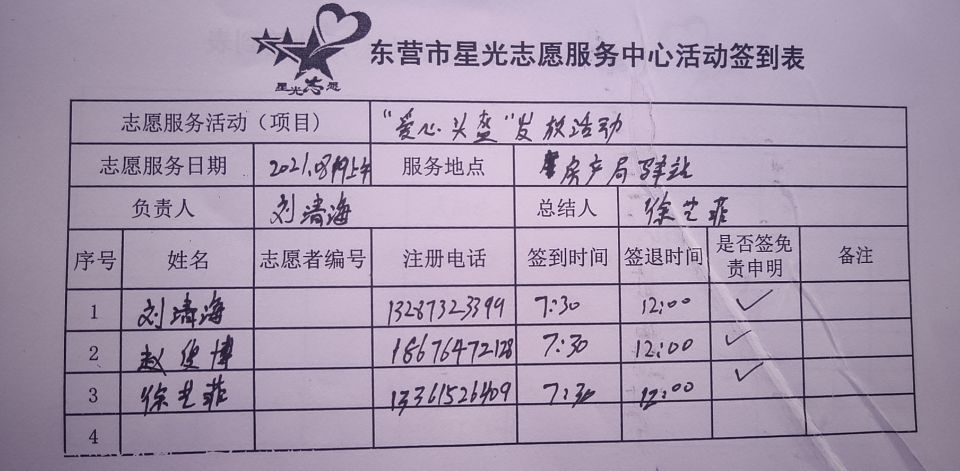 星光志愿
东营市星光志愿服务中心活动签到表
志愿服务活动（项目） “爱心头盔”发放活动
志愿服务日期 2021.08 上午 服务地点 房产局驿站
负责人 刘清海 总结人 徐艺菲
序号 姓名 志愿者编号 注册电话 签到时间 签退时间 是否签免责申明 备注
1 刘清海 13287323399 7:30 12:00 ✓
2 赵俊博 18676472128 7:30 12:00 ✓
3 徐艺菲 13361526409 7:30 12:00 ✓
4